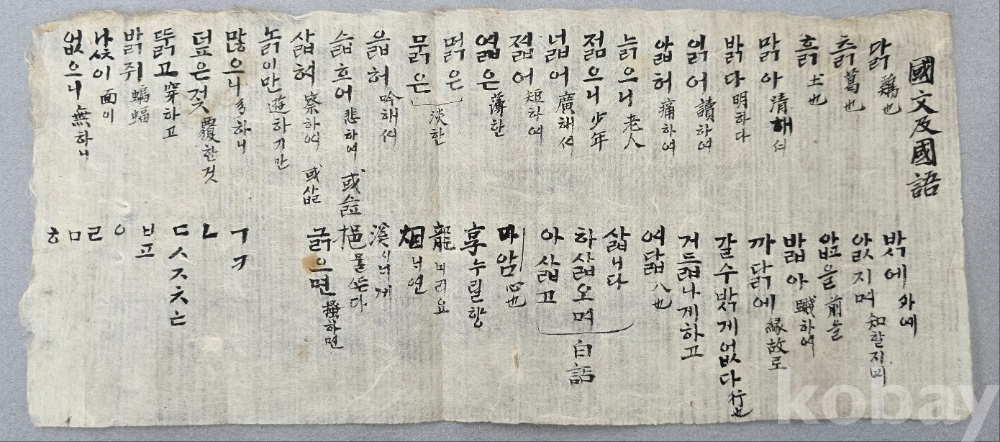 國文及國語
닭 鷄也
츩 葛也
흙 土也
맑아 清해셔
밝다 明하다
읽어 讀하여
앏허 痛하여
늙으니 老人
젊으니 少年
넓어 廣해셔
젋어 短하여
엷은 薄한
묽은 淡한
읇허 吟해셔
슯흐어 悲하여 或슯
삷혀 察하여 或삷
놁이만 遊하기만
많으니 多하니
덮은것 覆한것
뚥고 穿하고
밝쥐 蝙蝠
낯이 面이
없으니 無하니
밧에 外에
앐지며 知할지며
앞을 前을
밟아 踐하여
까닭에 緣故로
갈수밧게없다 行也
거듧나게하고
여듧 八也
삷니다
하삷오며
아삷고 白話
마암 心也
享누릴향
龍
烟
溪 시내게
挹 물뜬다
긁으면 하면
ㄱㅋ
ㄴ
ㄷㅅㅈㅊ는
ㅂ고
ㅇ
ㄹ
ㅁ
ㅎ
kobay